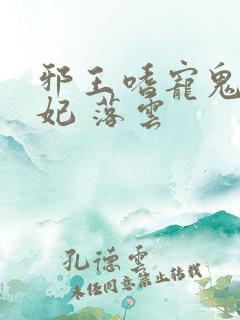 邪王嗜寵鬼
妃 落雲
孔德雲
未经同意禁止转载